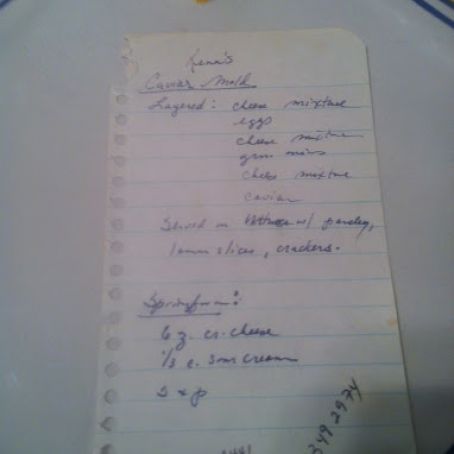 Kenn's
Caviar Mold
Layered: cheese mixture
eggs
cheese mixture
green onions
cheese mixture
caviar
Served on w/ parsley,
lemon slices, crackers.
Springform:
6 oz. cr. cheese
1/3 c. sour cream
S & p
3492974